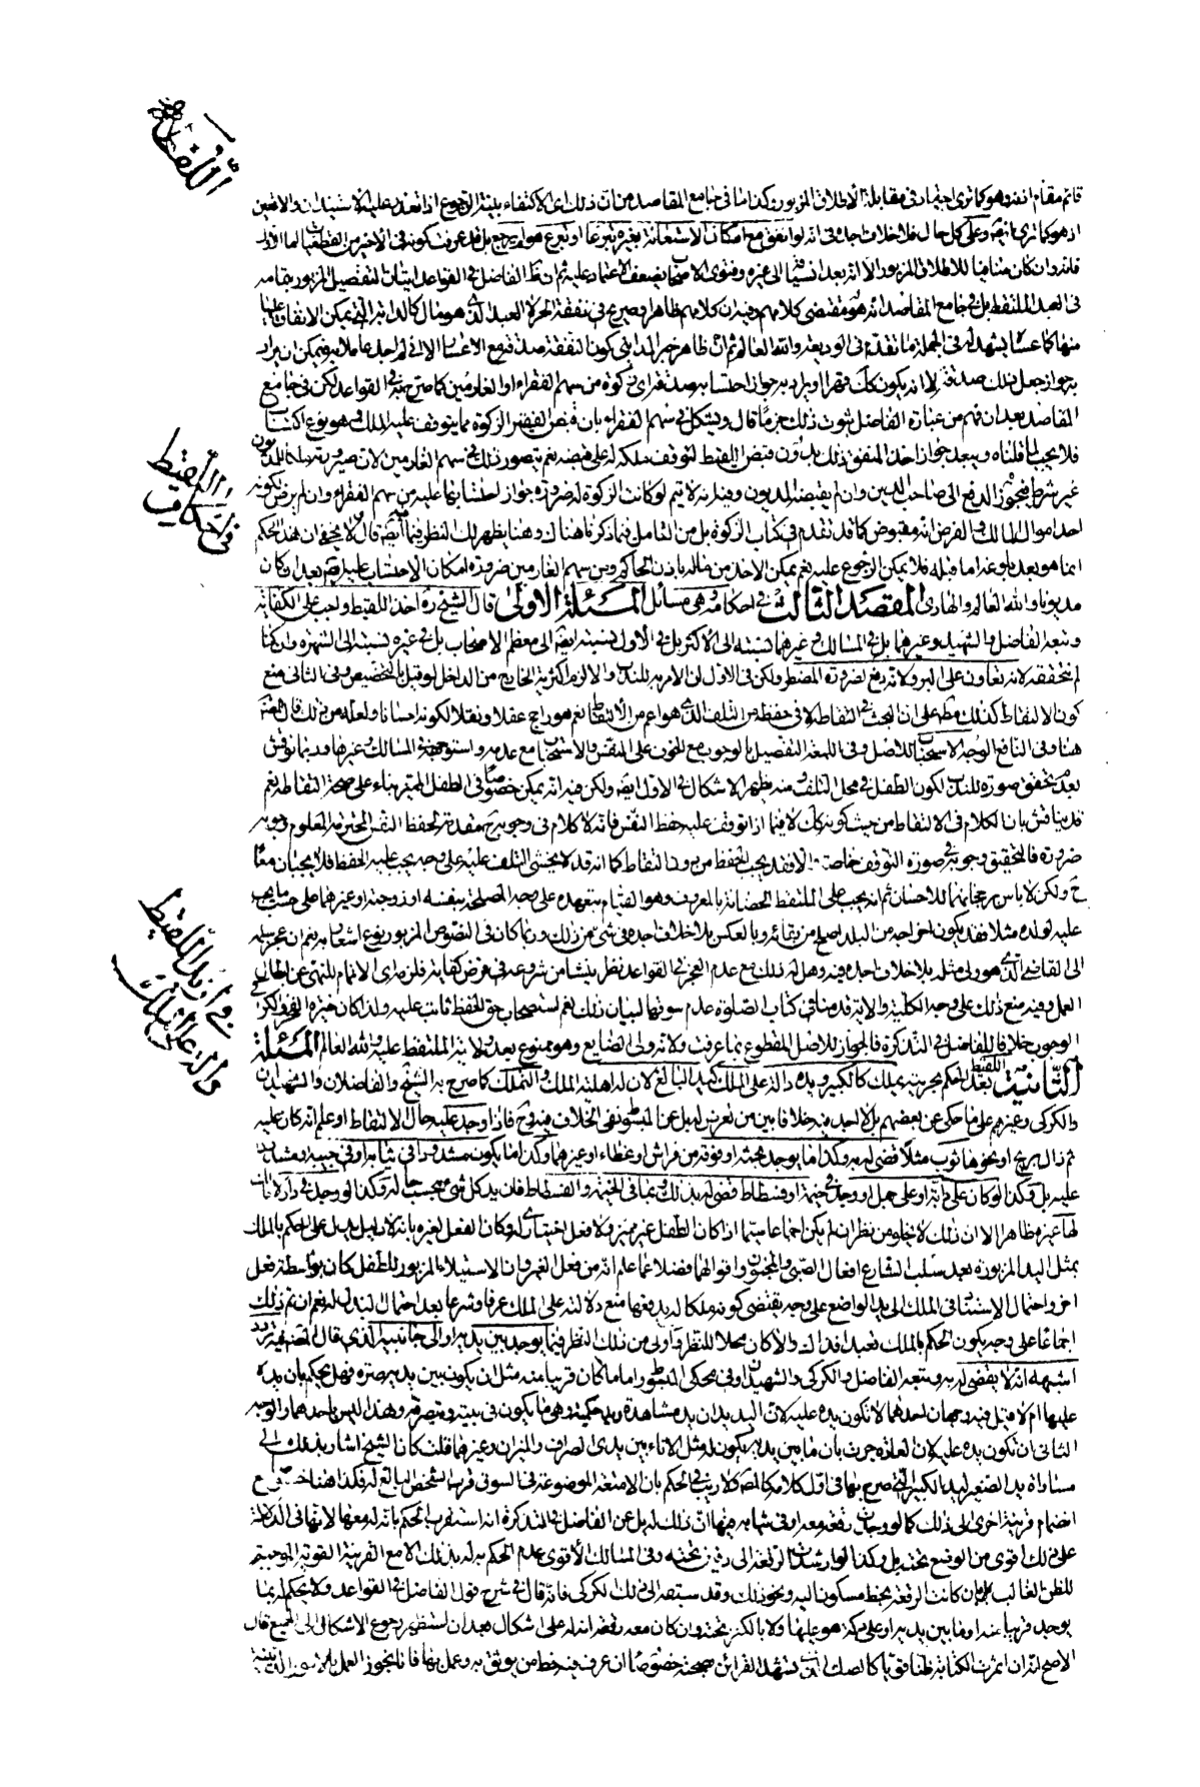 اللقطة
قائم مقام اذنه وهو كما ترى اجتهاد في مقابلة الاطلاق المزبور وكذا ما في جامع المقاصد من ان ذلك اي الاكتفاء بنية الرجوع اذا تعذر عليه الاستيذان والا تعين
اذ هو كما ترى ايضا وعلى كل حال فلا خلاف اجده في انه لو انفق مع امكان الاستعانة بغيره تبرعا او تبرع هو لم يرجع بل قد عرفت كونه في الاخير من القطعيات لما
فانه وان كان منافيا للاطلاق المزبور الا انه بعد ان
في العبد الملتقط بل في جامع المقاصد انه هو مقتضى كلامهم وفيه ان كلامهم ظاهر او صريح في نفقة الحر لا العبد الذي هو مال كالدابة التي يمكن الانفاق عليها
منها كما عساه يشهد له في الجملة ما تقدم في الوديعة والله العالم ثم ان ظاهر خبر المدايني كون النفقة صدقة مع الاعسار الا اني لم اجد عاملا به ويمكن ان يراد
به جواز جعل ذلك صدقة
المقاصد بعد ان فهم من عبارة الفاضل ثبوت ذلك جزما قال ويشكل في سهم الفقراء بان قبض الفقير الزكوة مما يتوقف عليه الملك وهو نوع اكتساب
فلا يجب لما قلناه ويبعد جواز اخذ المنفق ذلك بدون قبض اللقيط لتوقف ملكه له على قبضه نعم يتصور ذلك في سهم الغارمين لان صيرورته ملكا للمديون
غير شرط فيجوز الدفع الى صاحب الدين وان لم يقبضه المديون وفيه انه لا يتم لو كانت الزكوة
احد اموال المالك والفرض انه مقبوض كما قد تقدم في كتاب الزكوة بل من التامل فيما ذكرناه هناك وهنا يظهر لك النظر فيما ايضا قال ولا يخفى ان هذا الحكم
انما هو بعد بلوغه اما قبله فلا يمكن الرجوع عليه نعم يمكن الاخذ من ماله باذن الحاكم ومن سهم الغارمين ضرورة امكان الاحتساب عليه
مديونا والله العالم والهادي المقصد الثالث في احكامه وهي مسائل المسئلة الاولى قال الشيخ ره اخذ اللقيط واجب على الكفاية
في احكام اللقيط
وتبعه الفاضل والشهيد وغيرهما بل في المسالك وغيرهما نسبته الى الاكثر بل في الاول نسبته ايضا الى معظم الاصحاب بل في غيره نسبته الى الشهرة
لانه تعاون على البر ولانه دفع لضرورة المضطر ولكن في الاول ان الامر به للندب والا لزم اكثرية الخارج من الداخل لو قيل بالتخصيص وفي الثاني منع
كون الالتقاط كذلك مطلقا على ان البحث في التقاطه لا في حفظه من التلف الذي هو اعم من الالتقاط نعم هو راجح عقلا ونقلا لكونه احسانا ولعله من ذلك قال المصنف
هنا وفي النافع الوجه الاستحباب للاصل وفي اللمعة التفصيل بالوجوب مع الخوف على النفس والاستحباب مع عدمه واستوجهه في المسالك وغيرها وربما نوقش
بعدم تحقق صورة للندب لكون الطفل في محل التلف ومنه يظهر الاشكال في الاول ايضا ولكن فيه انه يمكن خصوصا في الطفل المميز بناء على صحة التقاطه نعم
قد يناقش بان الكلام في الالتقاط من حيث كونه كذلك لا فيما اذا توقف عليه حفظ النفس فانه لا كلام في وجوبه ح مقدمة لحفظ النفس المحترمة المعلوم وجوبه
ضرورة فالتحقيق وجوبه في صورة التوقف خاصة والا فقد يجب الحفظ من دون التقاط كما انه قد لا يخشى التلف عليه على وجه يجب عليه الحفظ فلا يجبان معا
ح ولكن لا باس برجحانهما للاحسان ثم انه يجب على الملتقط الحضانة بالمعروف وهو القيام بتعهده على وجه المصلحة بنفسه او زوجته او غيرهما على حسب ما يجب
عليه لولده مثلا فقد يكون اخراجه من البلد اصلح من بقائه وبالعكس بلا خلاف اجده في شيء من ذلك وربما كان في النصوص المزبورة نوع اشعار به نعم ان عجز سلمه
الى القاضي الذي هو ولي مثله بلا خلاف اجده فيه وهل له ذلك مع عدم العجز في القواعد نظر ينشا من شروعه في فرض كفاية فلزمه اي الاتمام للنهي عن ابطال
العمل وفيه منع ذلك على وجه الكلية والاية قد منا في كتاب الصلوة عدم سوقها لبيان ذلك نعم استصحاب حق الحفظ ثابت عليه ولذا كان خيرة الفخر والكركي
الوجوب خلافا للفاضل في التذكرة فالجواز للاصل المقطوع بما عرفت ولانه ولي الضايع وهو ممنوع بعد ولاية الملتقط عليه والله العالم المسئلة
الثانية اللقيط بعد الحكم بحريته يملك كالكبير ويده دالة على الملك كيد البالغ لان له اهلية الملك والتملك كما صرح به الشيخ والفاضلان والشهيدان
في ان يد اللقيط دالة على الملك
والكركي وغيرهم على ما حكي عن بعضهم بل لا اجد فيه خلافا بين من تعرض له بل عن المبسوط نفي الخلاف فيه وح فاذا وجد عليه حال الالتقاط او علم انه كان عليه
ثم زال بريح او نحوها ثوب مثلا قضي له به وكذا ما يوجد تحته او فوقه من فراش او غطاء او غيرهما وكذا ما يكون مشدودا في ثيابه او في جيبه
عليه بل وكذا لو كان على دابة او على جمل او وجد في خيمة او فسطاط قضي له بذلك وبما في الخيمة والفسطاط فان يد كل شيء بحسب حاله وكذا لو وجد في دار لا مالك
لها غيره ظاهرا الا ان ذلك لا يخلو من نظر ان لم يكن اجماعا سيما اذا كان الطفل غير مميز ولا فعل اختياري له وكان الفعل لغيره بانه لا دليل يدل على الحكم بالملك
بمثل اليد المزبورة بعد سلب الشارع افعال الصبي والمجنون واقوالهما فضلا عما علم انه من فعل الغير وان الاستيلاء المزبور للطفل كان بواسطة فعل
اخر واحتمال الاستناد في الملك الى يد الواضع على وجه يقتضي كونه ملكا له يدفعها منع دلالته على الملك عرفا وشرعا بعد احتمال البذل له نعم ان تم ذلك
اجماعا على وجه يكون الحكم بالملك تعبدا فذاك والا كان محلا للنظر واولى من ذلك بالنظر فيما يوجد بين يديه او الى جانبيه الذي قال المصنف فيه تردد
اشبهه انه لا يقضى له به وتبعه الفاضل والكركي والشهيدان وفي محكي المبسوط واما ما كان قريبا منه مثل ان يكون بين يديه صرة فهل يحكم بان يده
عليها ام لا قيل فيه وجهان احدهما لا تكون يده عليه لان اليد يدان يد مشاهدة ويد حكمية وهي ما يكون في بيته وتصرفه وهذا ليس باحدهما والوجه
الثاني ان تكون يده عليه لان العادة جرت بان ما بين يديه يكون له مثل الاناء بين يدي الصراف والميزان وغيرهما قلت كان الشيخ اشار بذلك الى
مساواة يد الصغير ليد الكبير التي صرح بها في اول كلامه كالمص ولا ريب في الحكم بان الامتعة الموضوعة في السوق قرب الشخص البالغ له فكذا هنا خصوصا مع
انضمام قرينة اخرى الى ذلك كما لو وجدت رقعة معه او في ثيابه فيها ان ذلك له بل عن الفاضل في التذكرة انه استقرب الحكم بانه له معها لانها في الدلالة
على ذلك اقوى من الوضع تحته بل وكذا لو ارشدت الرقعة الى دفين تحته وفي المسالك الاقوى عدم الحكم به له بذلك الا مع القرينة القوية الموجبة
للظن الغالب بان كانت الرقعة بخط مسكون اليه ونحو ذلك وقد سبقه الى ذلك الكركي فانه قال في شرح قول الفاضل في القواعد ولا يحكم له بما
يوجد قريبا عنه او ما بين يديه او على دكة هو عليها ولا بالكنز تحته وان كان معه رقعة انه له على اشكال بعد ان استظهر رجوع الاشكال الى الجميع قال
الاصح انه ان اثمرت الكتابة ظنا قويا كالصك الذي تشهد القرائن بصحته خصوصا ان عرف فيه خط من يوثق به وعمل بها فانا نجوز العمل